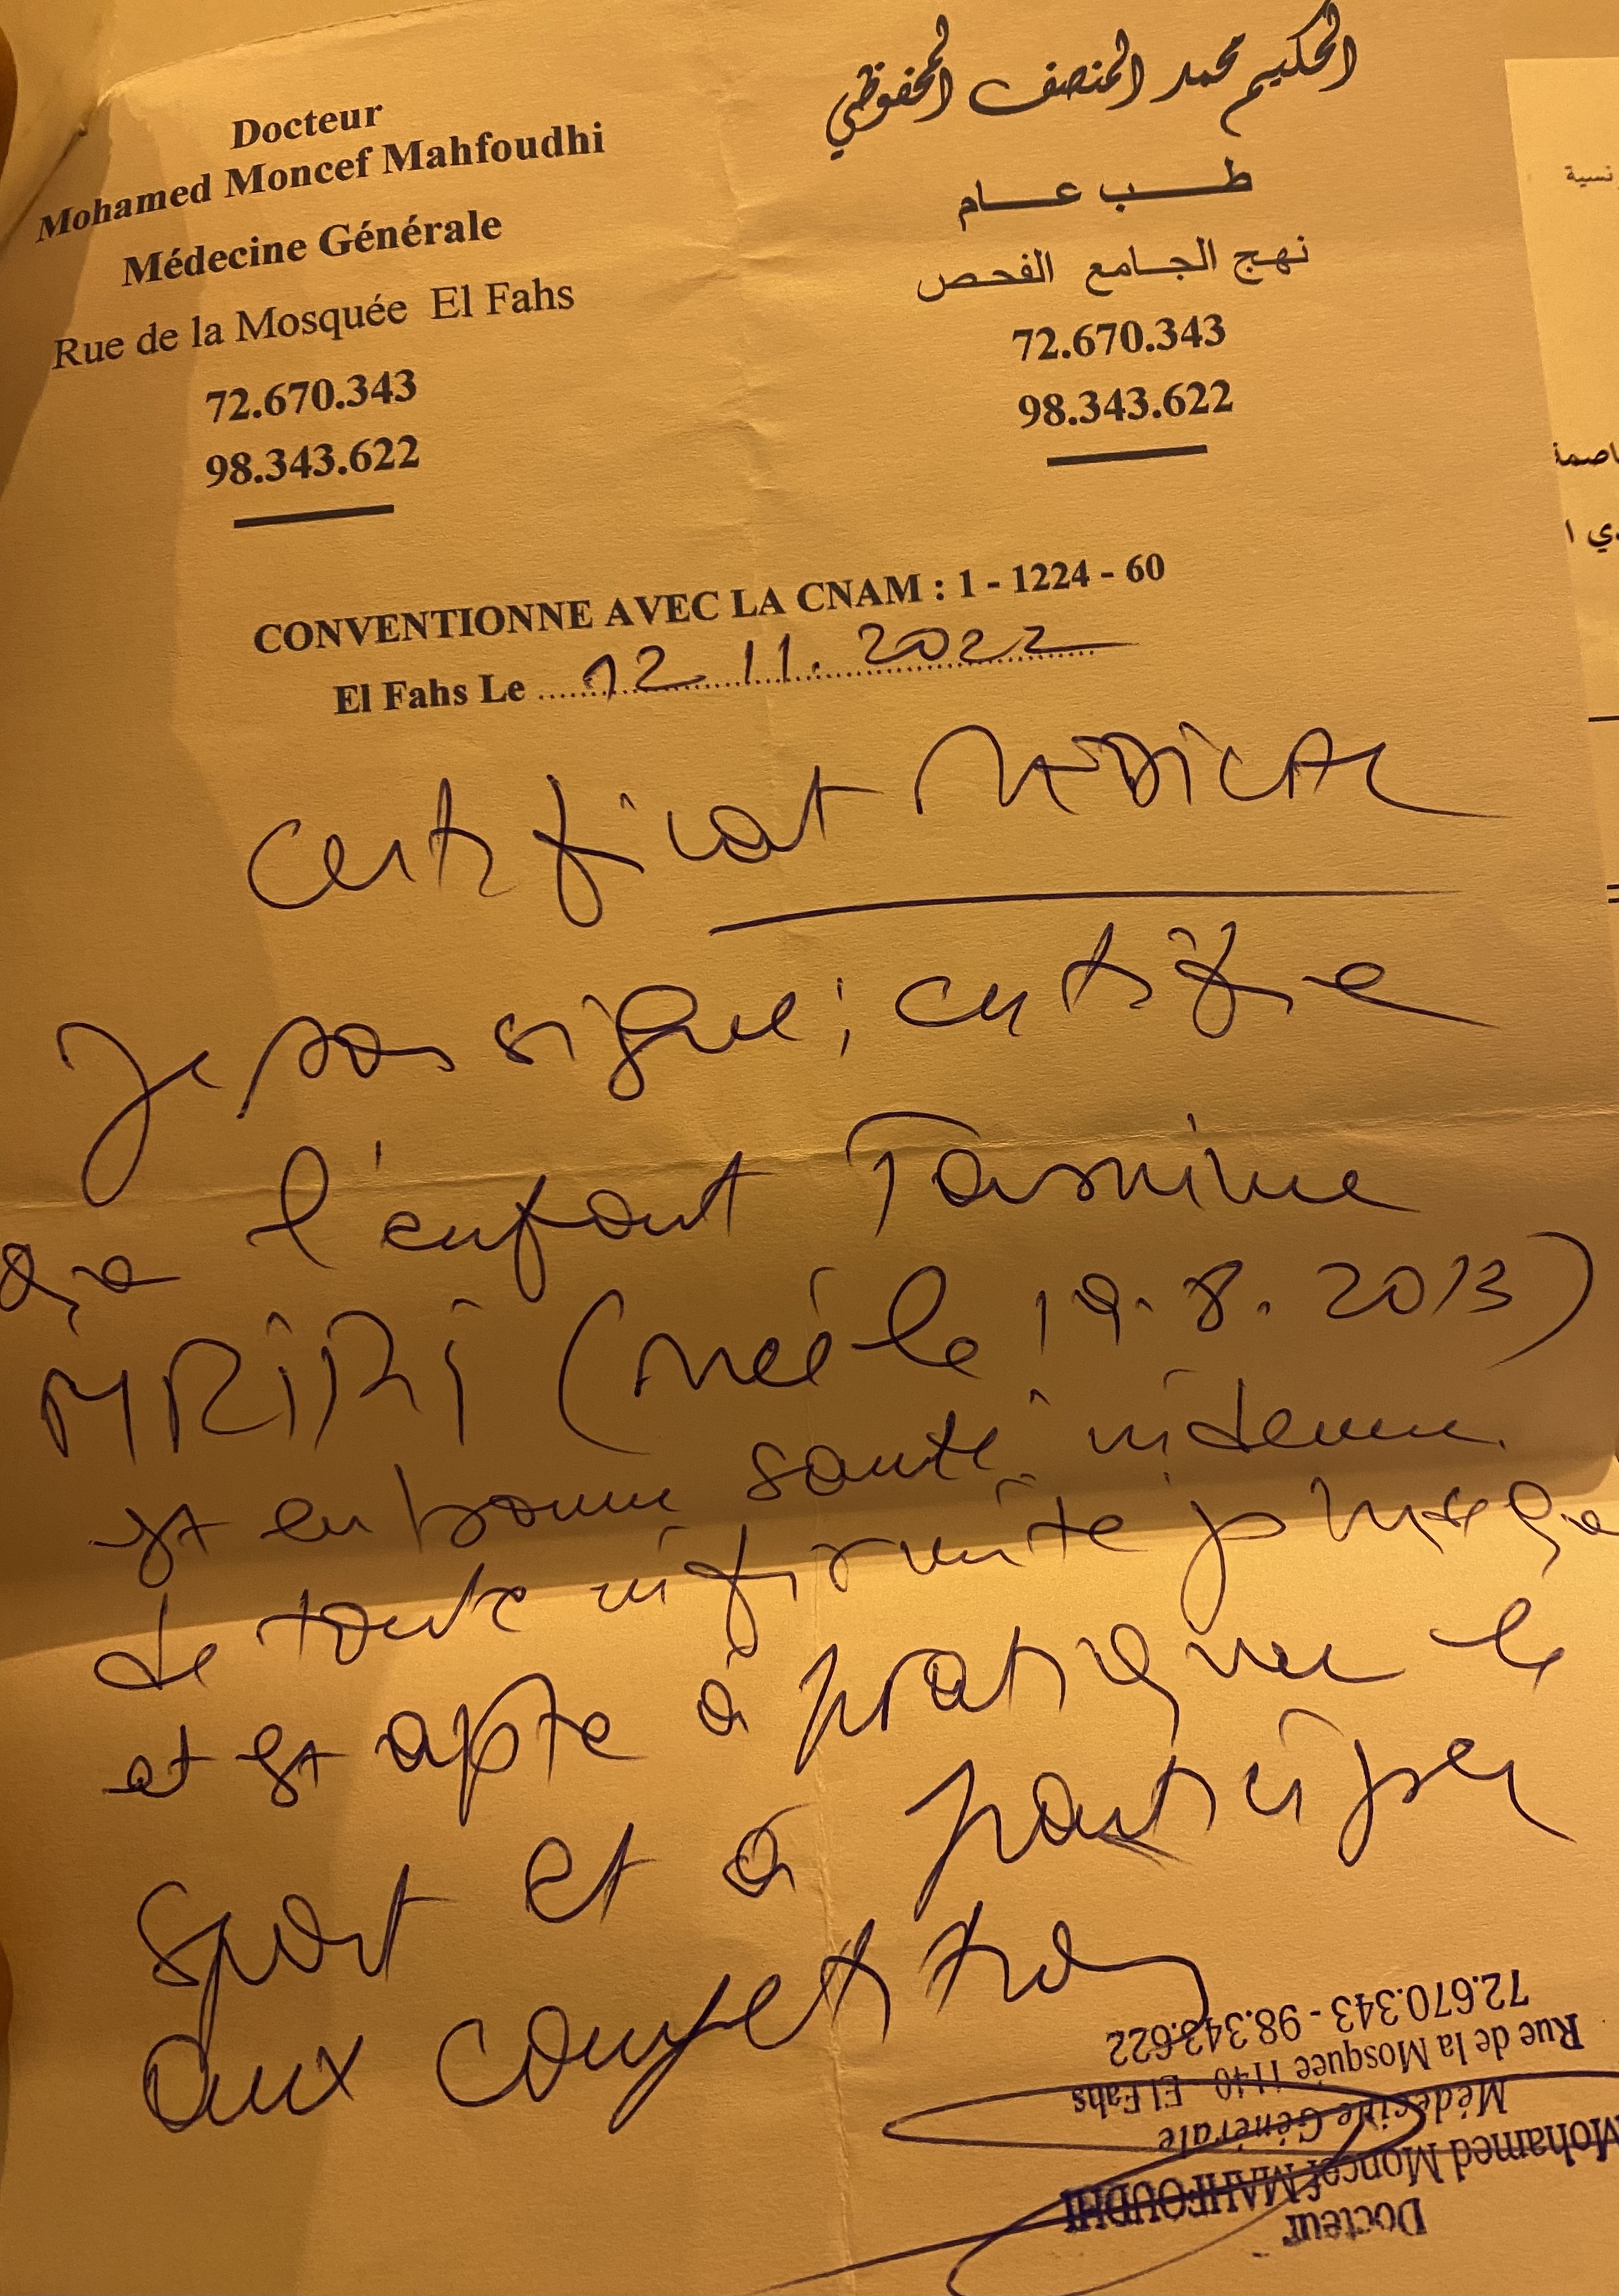 Docteur
Mohamed Moncef Mahfoudhi
Médecine Générale
Rue de la Mosquée El Fahs
72.670.343
98.343.622
الحكيم محمد المنصف المحفوظي
طب عام
نهج الجامع الفحص
72.670.343
98.343.622
CONVENTIONNE AVEC LA CNAM : 1 - 1224 - 60
El Fahs Le 12.11.2022
Certificat MEDICAL
Je sous signé, certifie
que l'enfant Tasnime
MRIRI (née le 19.8.2013)
est en bonne santé indemne
de toute infirmité physique
et est apte à pratiquer le
sport et à participer
aux competition
Docteur
Mohamed Moncef MAHFOUDHI
Médecine Générale
Rue de la Mosquée 1140 - El Fahs
72.670.343 - 98.343.622
نسية